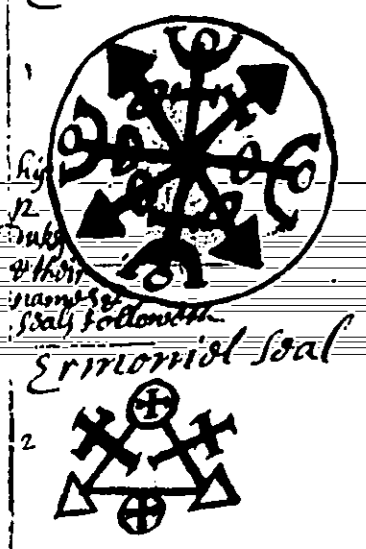 1
his
12
dukes
& their
names &
seals followeth
Ermoniel seal
2